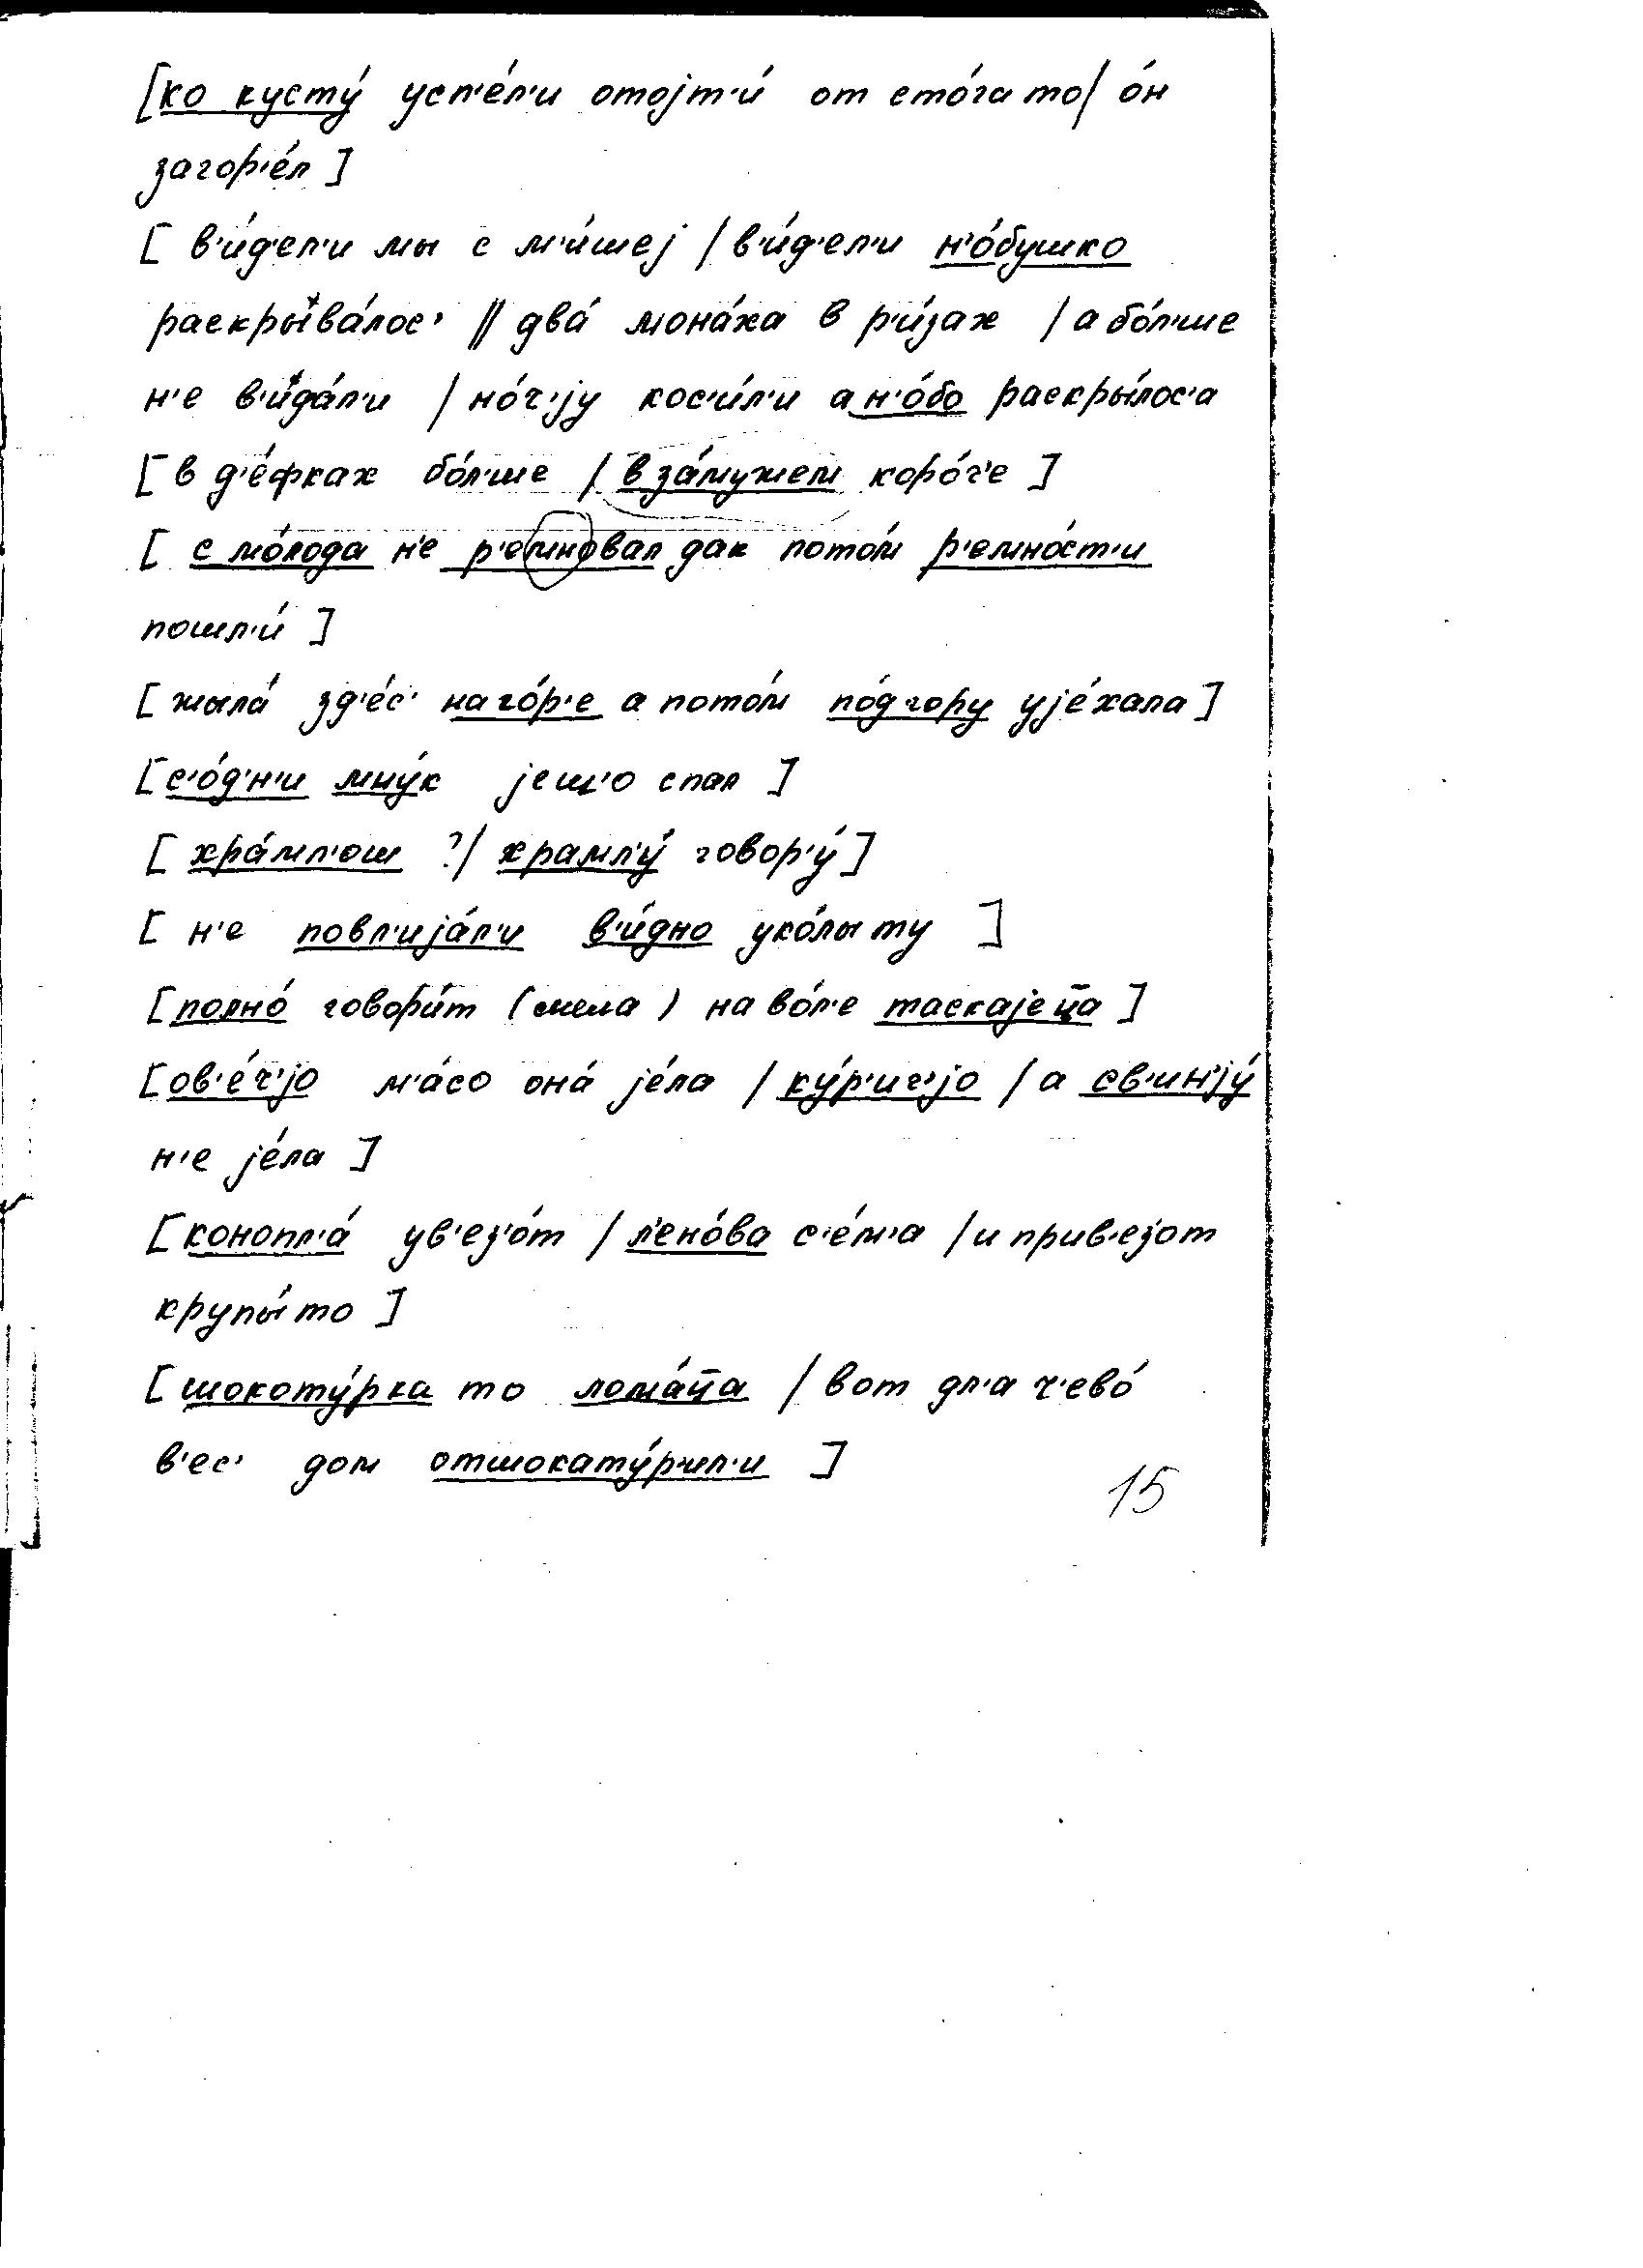 [ко кусту́ усп'е́л'и отоjт'и́ от сто́га то/ о́н
загор'е́л]
[в'и́дел'и мы с м'и́шеj /в'и́д'ел'и н'о́бушко
раскрыва́лос' // два́ мона́ха в р'и́зах / а бо́л'ше
н'е в'ида́л'и / но́ч'jу кос'и́л'и а н'о́бо раскры́лос'а
[в д'е́фках бо́л'ше / в за́мужем коро́ч'е]
[с мо́лода н'е р'емновал дак пото́м р'емно́ст'и
пошл'и́]
[жыла́ зд'е́с' на го́р'е а пото́м по́д гору уjе́хала]
[с'о́д'н'и мну́к jеш'о спал]
[хра́мл'ош ?/ храмл'у́ говор'у́]
[н'е повл'иjа́л'и в'и́дно уко́лы ту]
[полно́ говори́т (мела) на во́л'е таскаjец̄а]
[ов'е́ч'jо м'а́со она́ jе́ла / ку́р'ич'jо / а св'ин'jу́
н'е jе́ла]
[конопл'а́ ув'ез'о́т / л'ено́ва с'е́м'а / и прив'езот
крупы́ то]
[шокоту́рка то лома́ц̄а / вот дл'а ч'ево́
в'ес' дом отшокату́рил'и]
15